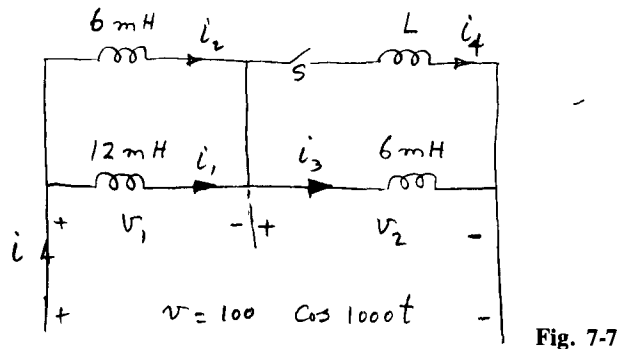 6 mH i₂ L i₄
S
12 mH i₁ i₃ 6 mH
+ v₁ - + v₂ -
i
+ v = 100 Cos 1000t -
Fig. 7-7